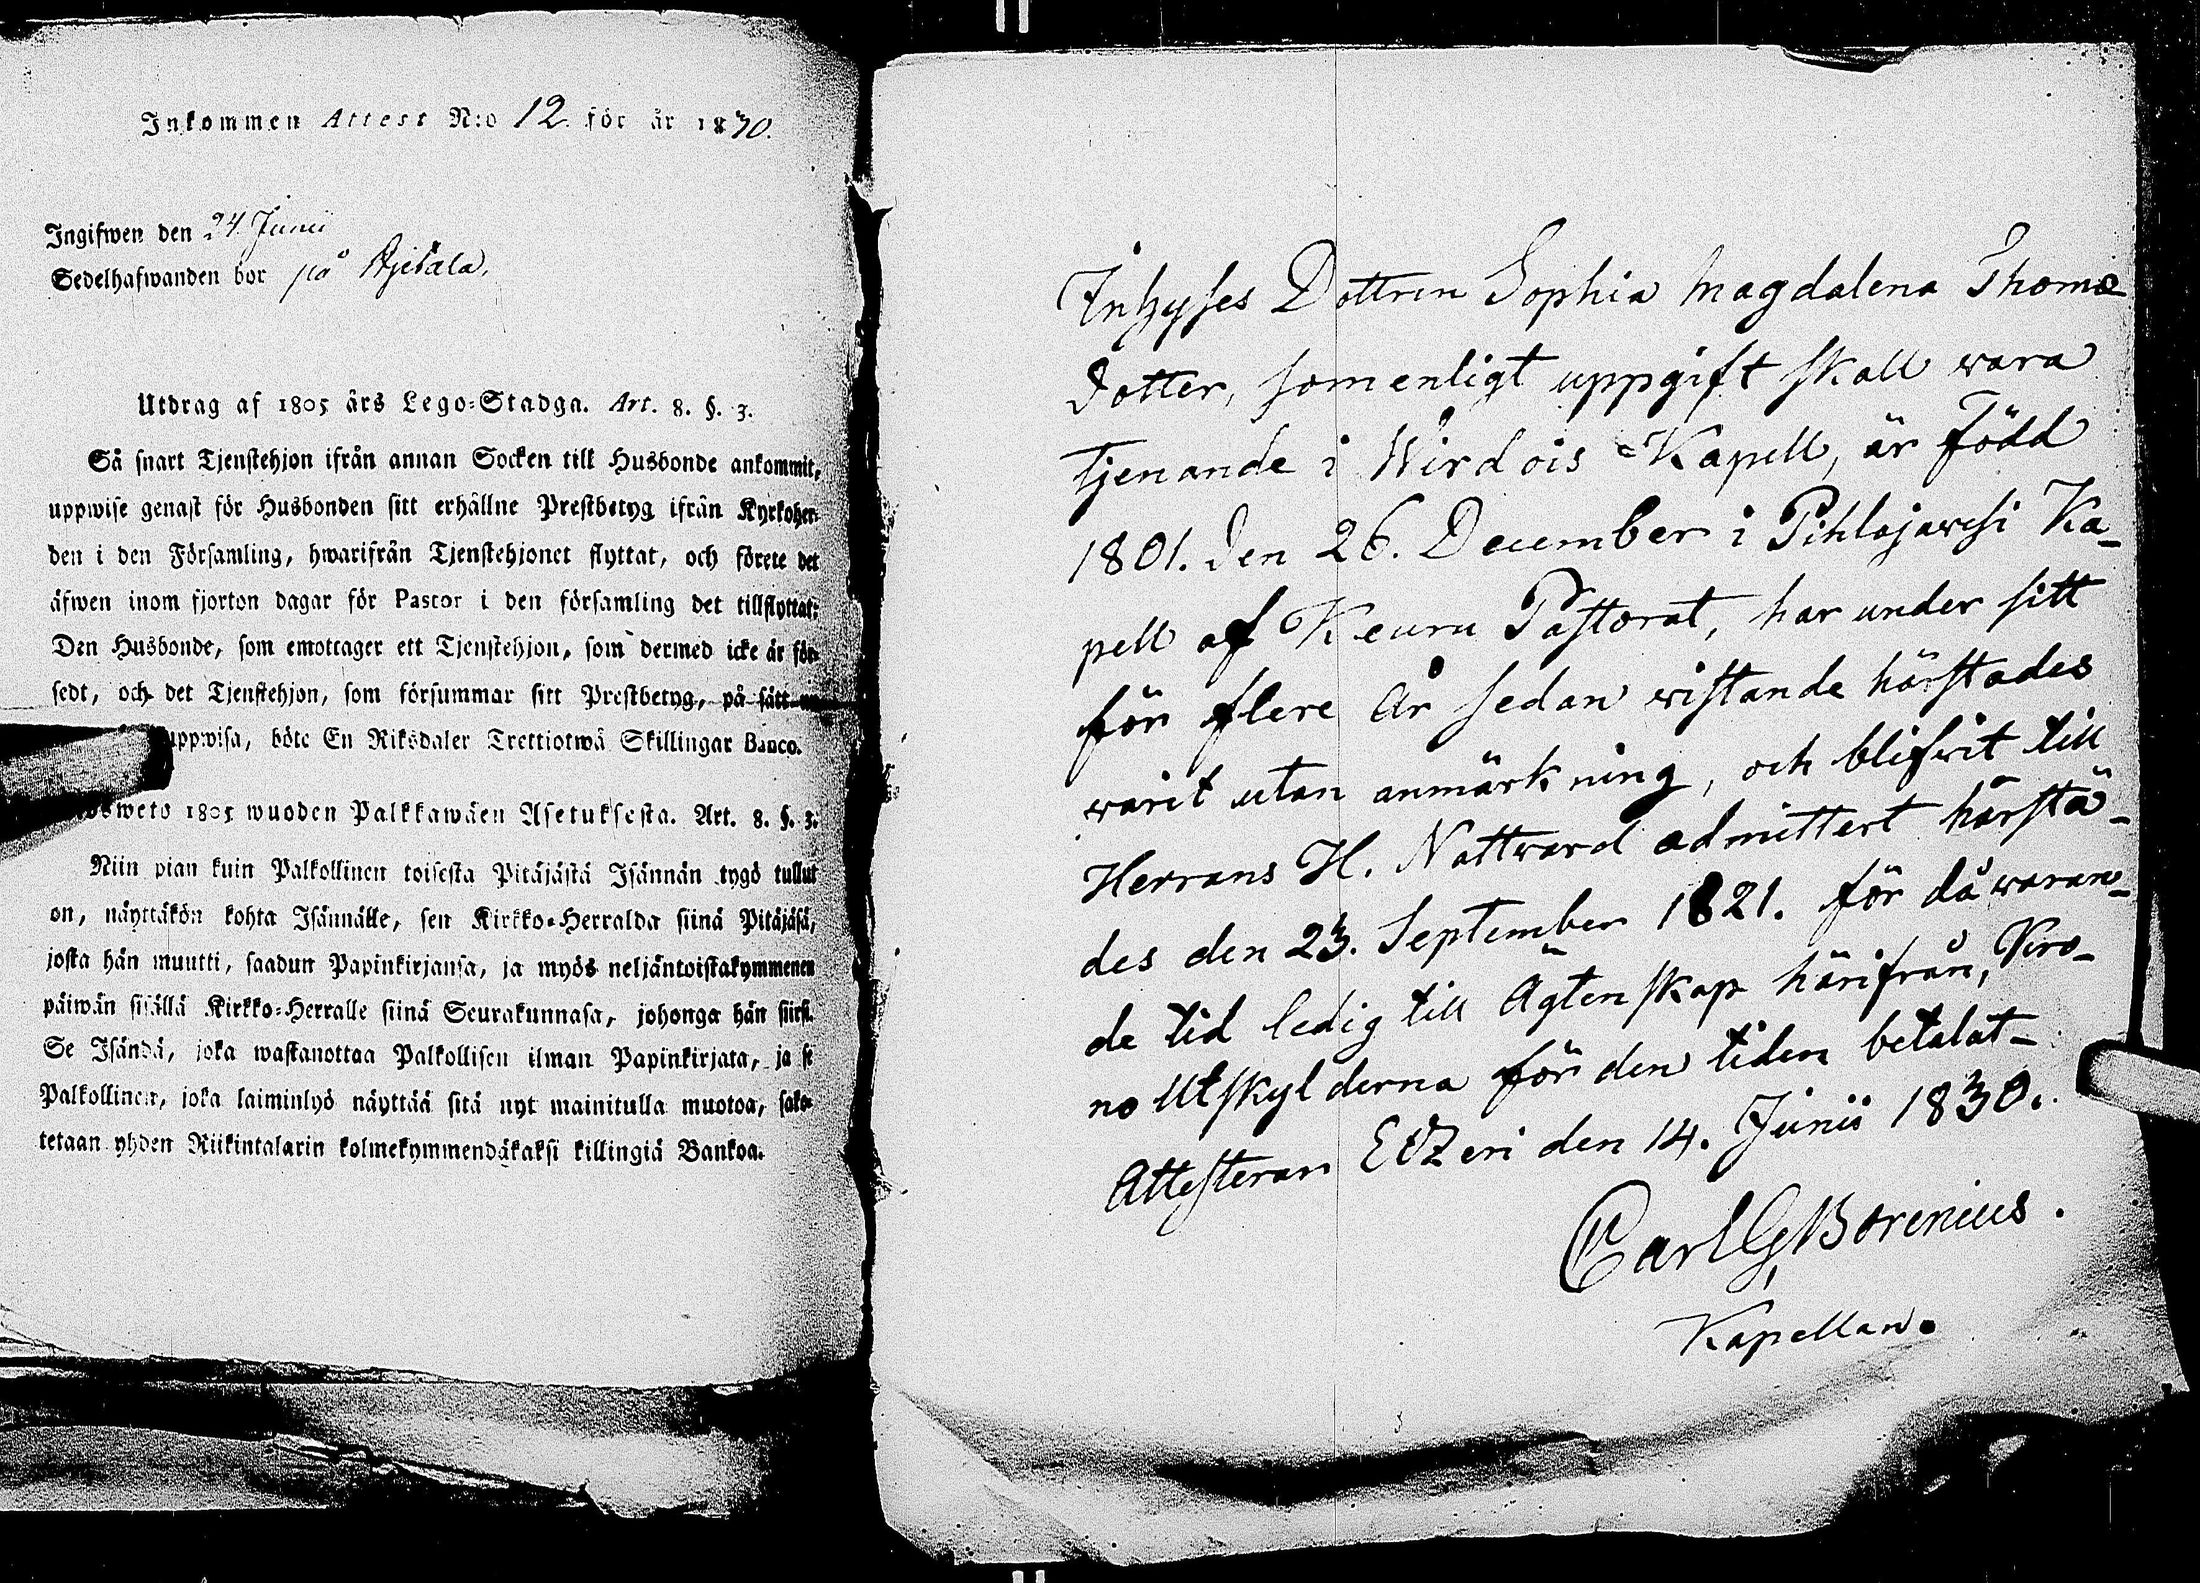 Inkommen Attest N:o 12. för år 1830.
Ingifwen den 24. Junii
Sedelhafwanden bor på
Utdrag af 1805 års Lego-Stadga. Art. 8. §. 3.
Så snart Tjenstehjon ifrån annan Socken till Husbonde ankommit,
uppwise genast för Husbonden sitt erhållne Prestbetyg ifrån Kyrkoher-
den i den Församling, hwarifrån Tjenstehjonet flyttat, och förete det
äfwen inom fjorton dagar för Pastor i den församling det tillflyttat:
Den Husbonde, som emottager ett Tjenstehjon, som dermed icke är för-
sedt, och det Tjenstehjon, som försummar sitt Prestbetyg, på sätt
uppwisa, böte En Riksdaler Trettiotwå Skillingar Banco.
1805 wuoden Palkkawäen Asetuksesta. Art. 8. §. 3.
Niin pian kuin Palkollinen toisesta Pitäjästä Isännän tygö tullut
on, näyttäkön kohta Isännälle, sen Kirkko-Herralda siinä Pitäjäsä,
josta hän muutti, saadun Papinkirjansa, ja myös neljäntoistakymmenen
päiwän sisällä Kirkko-Herralle siinä Seurakunnasa, johonga hän siirsi.
Se Isändä, joka wastanottaa Palkollisen ilman Papinkirjata, ja se
Palkollinen, joka laiminlyö näyttää sitä nyt mainitulla muotoa, sako-
tetaan yhden Riikintalarin kolmekymmendäkaksi killingiä Bankoa.
Inhyses Dottren Sophia Magdalena Thomæ
dotter, som enligt uppgift skall wara
tjenande i Wirdois Kapell, är född
1801. den 26. December i Pihlajawesi Ka-
pell af Keuru Pastorat, har under sitt
för flere År sedan wistande härstädes
warit utan anmärkning, och blifwit till
Herrans H. Nattward admittert härstä-
des den 23. September 1821. för då waran-
de tid ledig till Ägtenskap härifrån, Kro-
no Utskylderna för den tiden betalat-
Attesterar Etzeri den 14. Junii 1830.
Carl G Borenius.
Kapellan.